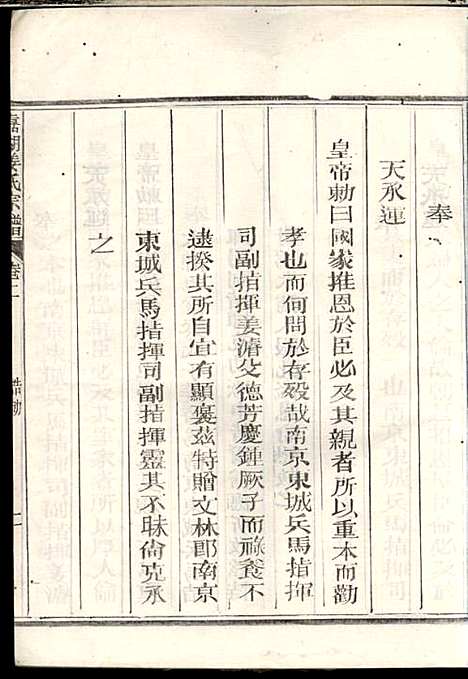 奉
天承運
皇帝勅曰國家推恩於臣必及其親者所以重本而勸
孝也而何間於存歿哉南京東城兵馬指揮
司副指揮姜濬父德芳慶鍾厥子而祿養不
逮揆其所自宜有顯褒茲特贈文林郎南京
東城兵馬指揮司副指揮靈其不昧尙克承
之
姜氏宗譜
卷二
誥勅